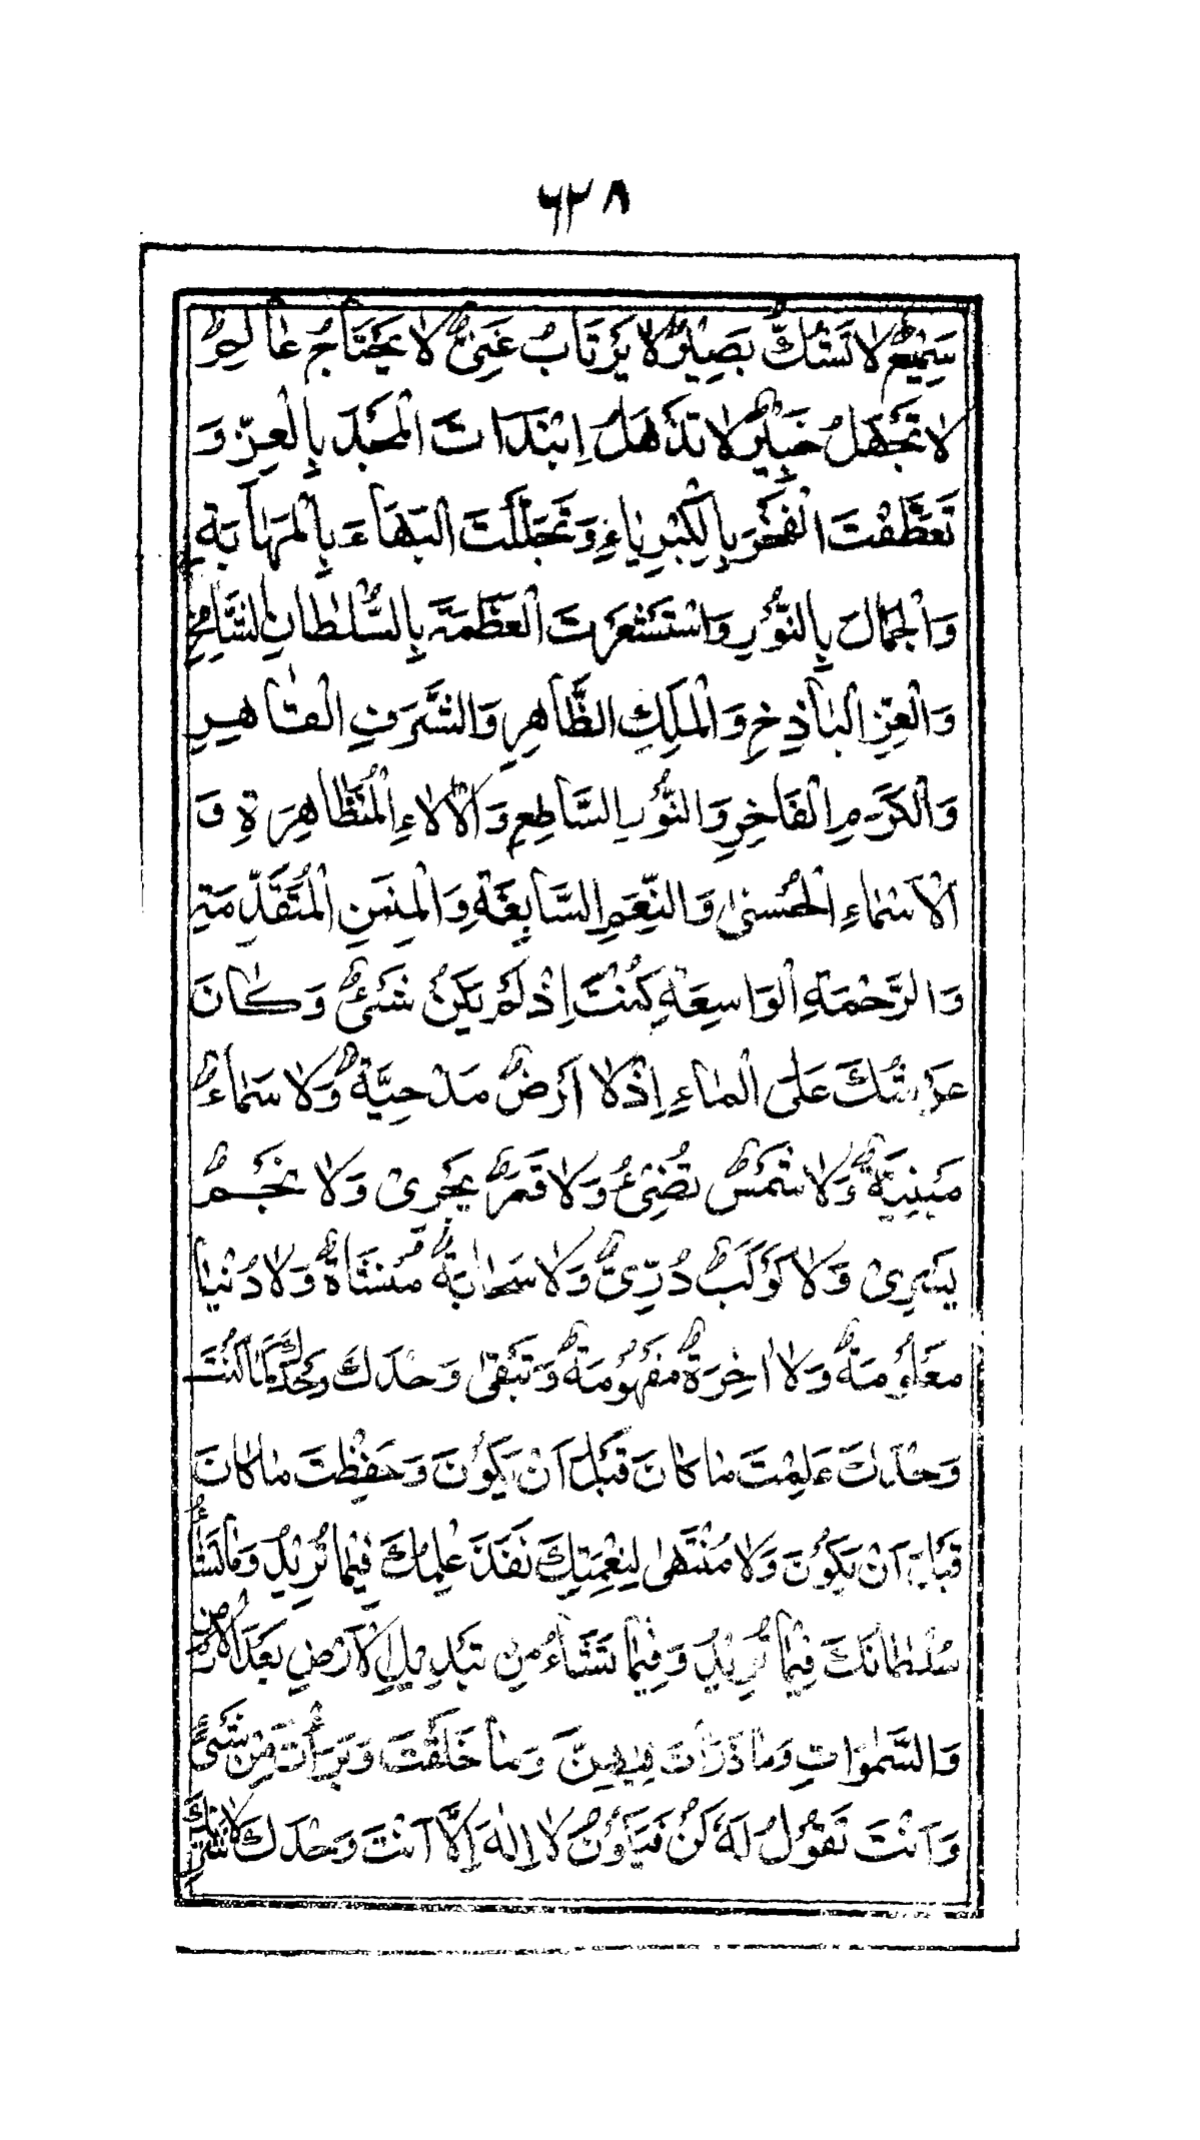 ٦٢٨
سَمِيْعٌ لَا تَشُكُّ بَصِيْرٌ لَا يَرْتَابُ غَنِيٌّ لَا يَحْتَاجُ عَالِمٌ
لَا تَجْهَلُ خَبِيْرٌ لَا تَذْهَلُ اِبْتَدَاتَ الْمَجْدَ بِالْعِزِّ وَ
تَعَظَّفْتَ الْفَخْرَ بِالْكِبْرِيَاءِ وَتَجَلَّلْتَ الْبَهَاءَ بِالْمَهَابَةِ
وَالْجَمَالَ بِالنُّوْرِ وَاسْتَشْعَرْتَ الْعَظَمَةَ بِالسُّلْطَانِ الشَّامِخِ
وَالْعِزِّ الْبَاذِخِ وَالْمَلِكِ الظَّاهِرِ وَالشَّرَفِ الْقَاهِرِ
وَالْكَرَمِ الْفَاخِرِ وَالنُّوْرِ السَّاطِعِ وَالْاٰلَاءِ الْمُتَظَاهِرَةِ وَ
الْاَسْمَاءِ الْحُسْنٰى وَالنِّعَمِ السَّابِغَةِ وَالْمِنَنِ الْمُتَقَدِّمَةِ
وَالرَّحْمَةِ الْوَاسِعَةِ كُنْتَ اِذْ لَمْ يَكُنْ شَيْءٌ وَكَانَ
عَرْشُكَ عَلَى الْمَاءِ اِذْ لَا اَرْضٌ مَدْحِيَّةٌ وَلَا سَمَاءٌ
مَبْنِيَّةٌ وَلَا شَمْسٌ تُضِيْءُ وَلَا قَمَرٌ يَجْرِىْ وَلَا نَجْمٌ
يَسْرِىْ وَلَا كَوْكَبٌ دُرِّىٌّ وَلَا سَحَابَةٌ مُنْشَاَةٌ وَلَا دُنْيَا
مَعْلُوْمَةٌ وَلَا اٰخِرَةٌ مَفْهُوْمَةٌ وَتَبْقٰى وَحْدَكَ وَحْدَكَ كَمَا كُنْتَ
وَحْدَكَ عَلِمْتَ مَا كَانَ قَبْلَ اَنْ يَكُوْنَ وَحَفِظْتَ مَا كَانَ
قَبْلَ اَنْ يَكُوْنَ وَلَا مُنْتَهٰى لِنِعْمَتِكَ نَفَذَ عِلْمُكَ فِيْمَا تُرِيْدُ وَمَا تَشَاءُ
سُلْطَانُكَ فِيْمَا تُرِيْدُ وَفِيْمَا تَشَاءُ مِنْ تَبْدِيْلِ الْاَرْضِ بَعْدَ الْاَرْضِ
وَالسَّمٰوَاتِ وَمَا ذَرَاْتَ فِيْهِنَّ وَمَا خَلَقْتَ وَبَرَأْتَ مِنْ شَيْءٍ
وَاَنْتَ تَقُوْلُ لَهٗ كُنْ فَيَكُوْنُ لَا اِلٰهَ اِلَّا اَنْتَ وَحْدَكَ لَا شَرِيْكَ